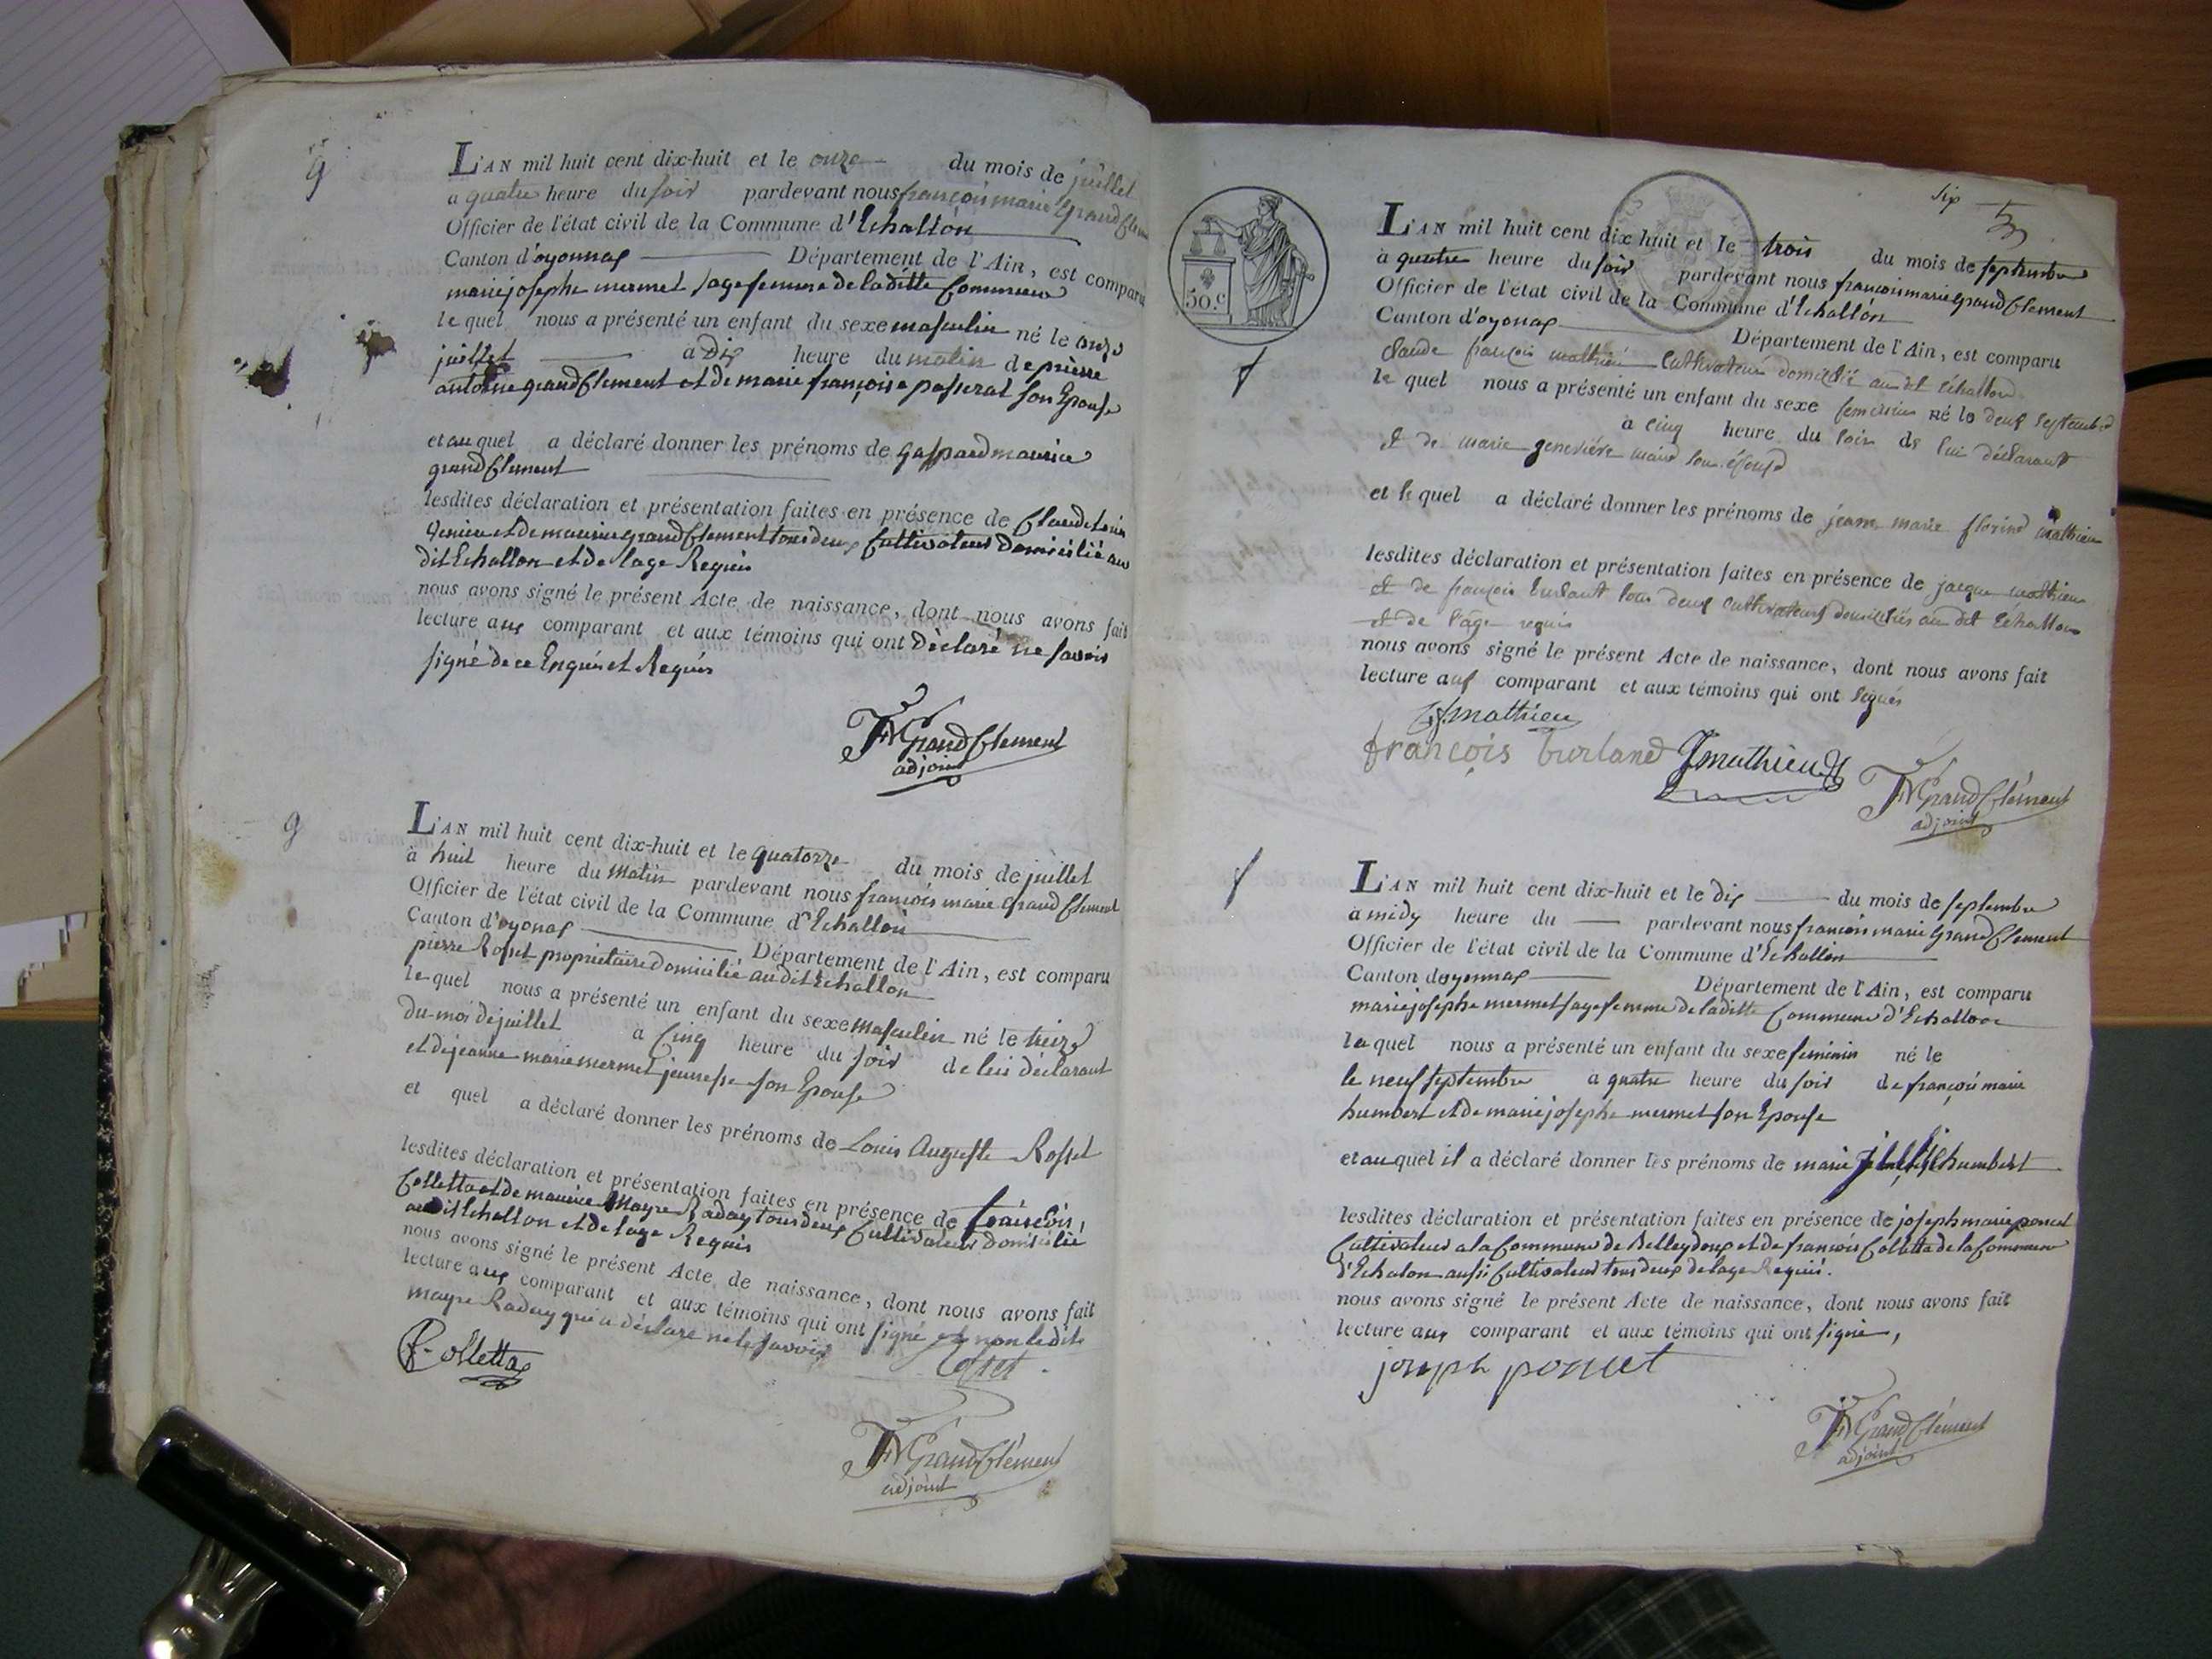 g
L'AN mil huit cent dix-huit et le onze du mois de juillet
a quatre heure du soir pardevant nous françois marie Grand Clem
Officier de l'état civil de la Commune d'Echallon
Canton d'oyonnax Département de l'Ain, est comparu
marie josephe mermet sagefemme de la ditte Commune
le quel nous a présenté un enfant du sexe masculin né le onze
juillet a Dix heure du matin de pierre
antoine grand Clement et de marie françoise passerat son Epouse
et au quel a déclaré donner les prénoms de gaspard maurice
grand Clement
lesdites déclaration et présentation faites en présence de Claude
et de maurice grand Clement tous deux Cultivateurs Domicilié au
dit Echallon et de l'age Requis
nous avons signé le présent Acte de naissance, dont nous avons fait
lecture aux comparant et aux témoins qui ont Déclaré ne savoir
signé de ce Enquis et Requis
FMGrandClement
adjoint
g
L'AN mil huit cent dix-huit et le quatorze du mois de juillet
à huit heure du matin pardevant nous françois marie Grand Clement
Officier de l'état civil de la Commune d'Echallon
Canton d'oyonax Département de l'Ain, est comparu
pierre Rosset propriétaire Domicilié au dit Echallon
le quel nous a présenté un enfant du sexe masculin né le treize
du moi de juillet à Cinq heure du soir de lui déclarant
et de jeanne marie mermet jeunesse son Epouse
et quel a déclaré donner les prénoms de Louis Auguste Rosset
lesdites déclaration et présentation faites en présence de françois
Colletta et de maurice Mayre Raday tous deux Cultivateurs Domicilié
au dit Echallon et de l'age Requis
nous avons signé le présent Acte de naissance, dont nous avons fait
lecture aux comparant et aux témoins qui ont signé et non le dit
mayre Raday qui a déclaré ne le savoir
F. Colletta
FMGrandClément
adjoint
six
50.c
L'AN mil huit cent dix huit et le trois du mois de septembre
à quatre heure du soir pardevant nous francois marie grand Clement
Officier de l'état civil de la Commune d'Echallon
Canton d'oyonax Département de l'Ain, est comparu
claude françois mathieu Cultivateur domicilié au dit échallon
le quel nous a présenté un enfant du sexe feminin né le deux septembre
à cinq heure du soir de lui déclarant
et de marie geneviève son épouse
et le quel a déclaré donner les prénoms de jeanne marie florine mathieu
lesdites déclaration et présentation faites en présence de jacque mathieu
et de françois burlant tous deux cultivateurs domiciliés au dit Echallon
et de l'age requis
nous avons signé le présent Acte de naissance, dont nous avons fait
lecture aux comparant et aux témoins qui ont signés
Cfmathieu
françois burland Jmathieu
FMGrandClément
adjoint
L'AN mil huit cent dix-huit et le dix du mois de septembre
a midy heure du pardevant nous francois marie Grand Clement
Officier de l'état civil de la Commune d'Echallon
Canton doyonnax Département de l'Ain, est comparu
marie josephe mermet sagefemme de la ditte Commune d'Echallon
la quel nous a présenté un enfant du sexe feminin né le
le neuf septembre a quatre heure du soir de françois marie
humbert et de marie josephe mermet son Epouse
et au quel il a déclaré donner les prénoms de marie humbert
lesdites déclaration et présentation faites en présence de joseph marie poncet
Cultivateur a la Commune de Belleydoux et de francois Colletta de la Commune
d'Echalon aussi Cultivateur tous deux de l'age Requis.
nous avons signé le présent Acte de naissance, dont nous avons fait
lecture aux comparant et aux témoins qui ont signé,
joseph poncet
FMGrandClément
adjoint